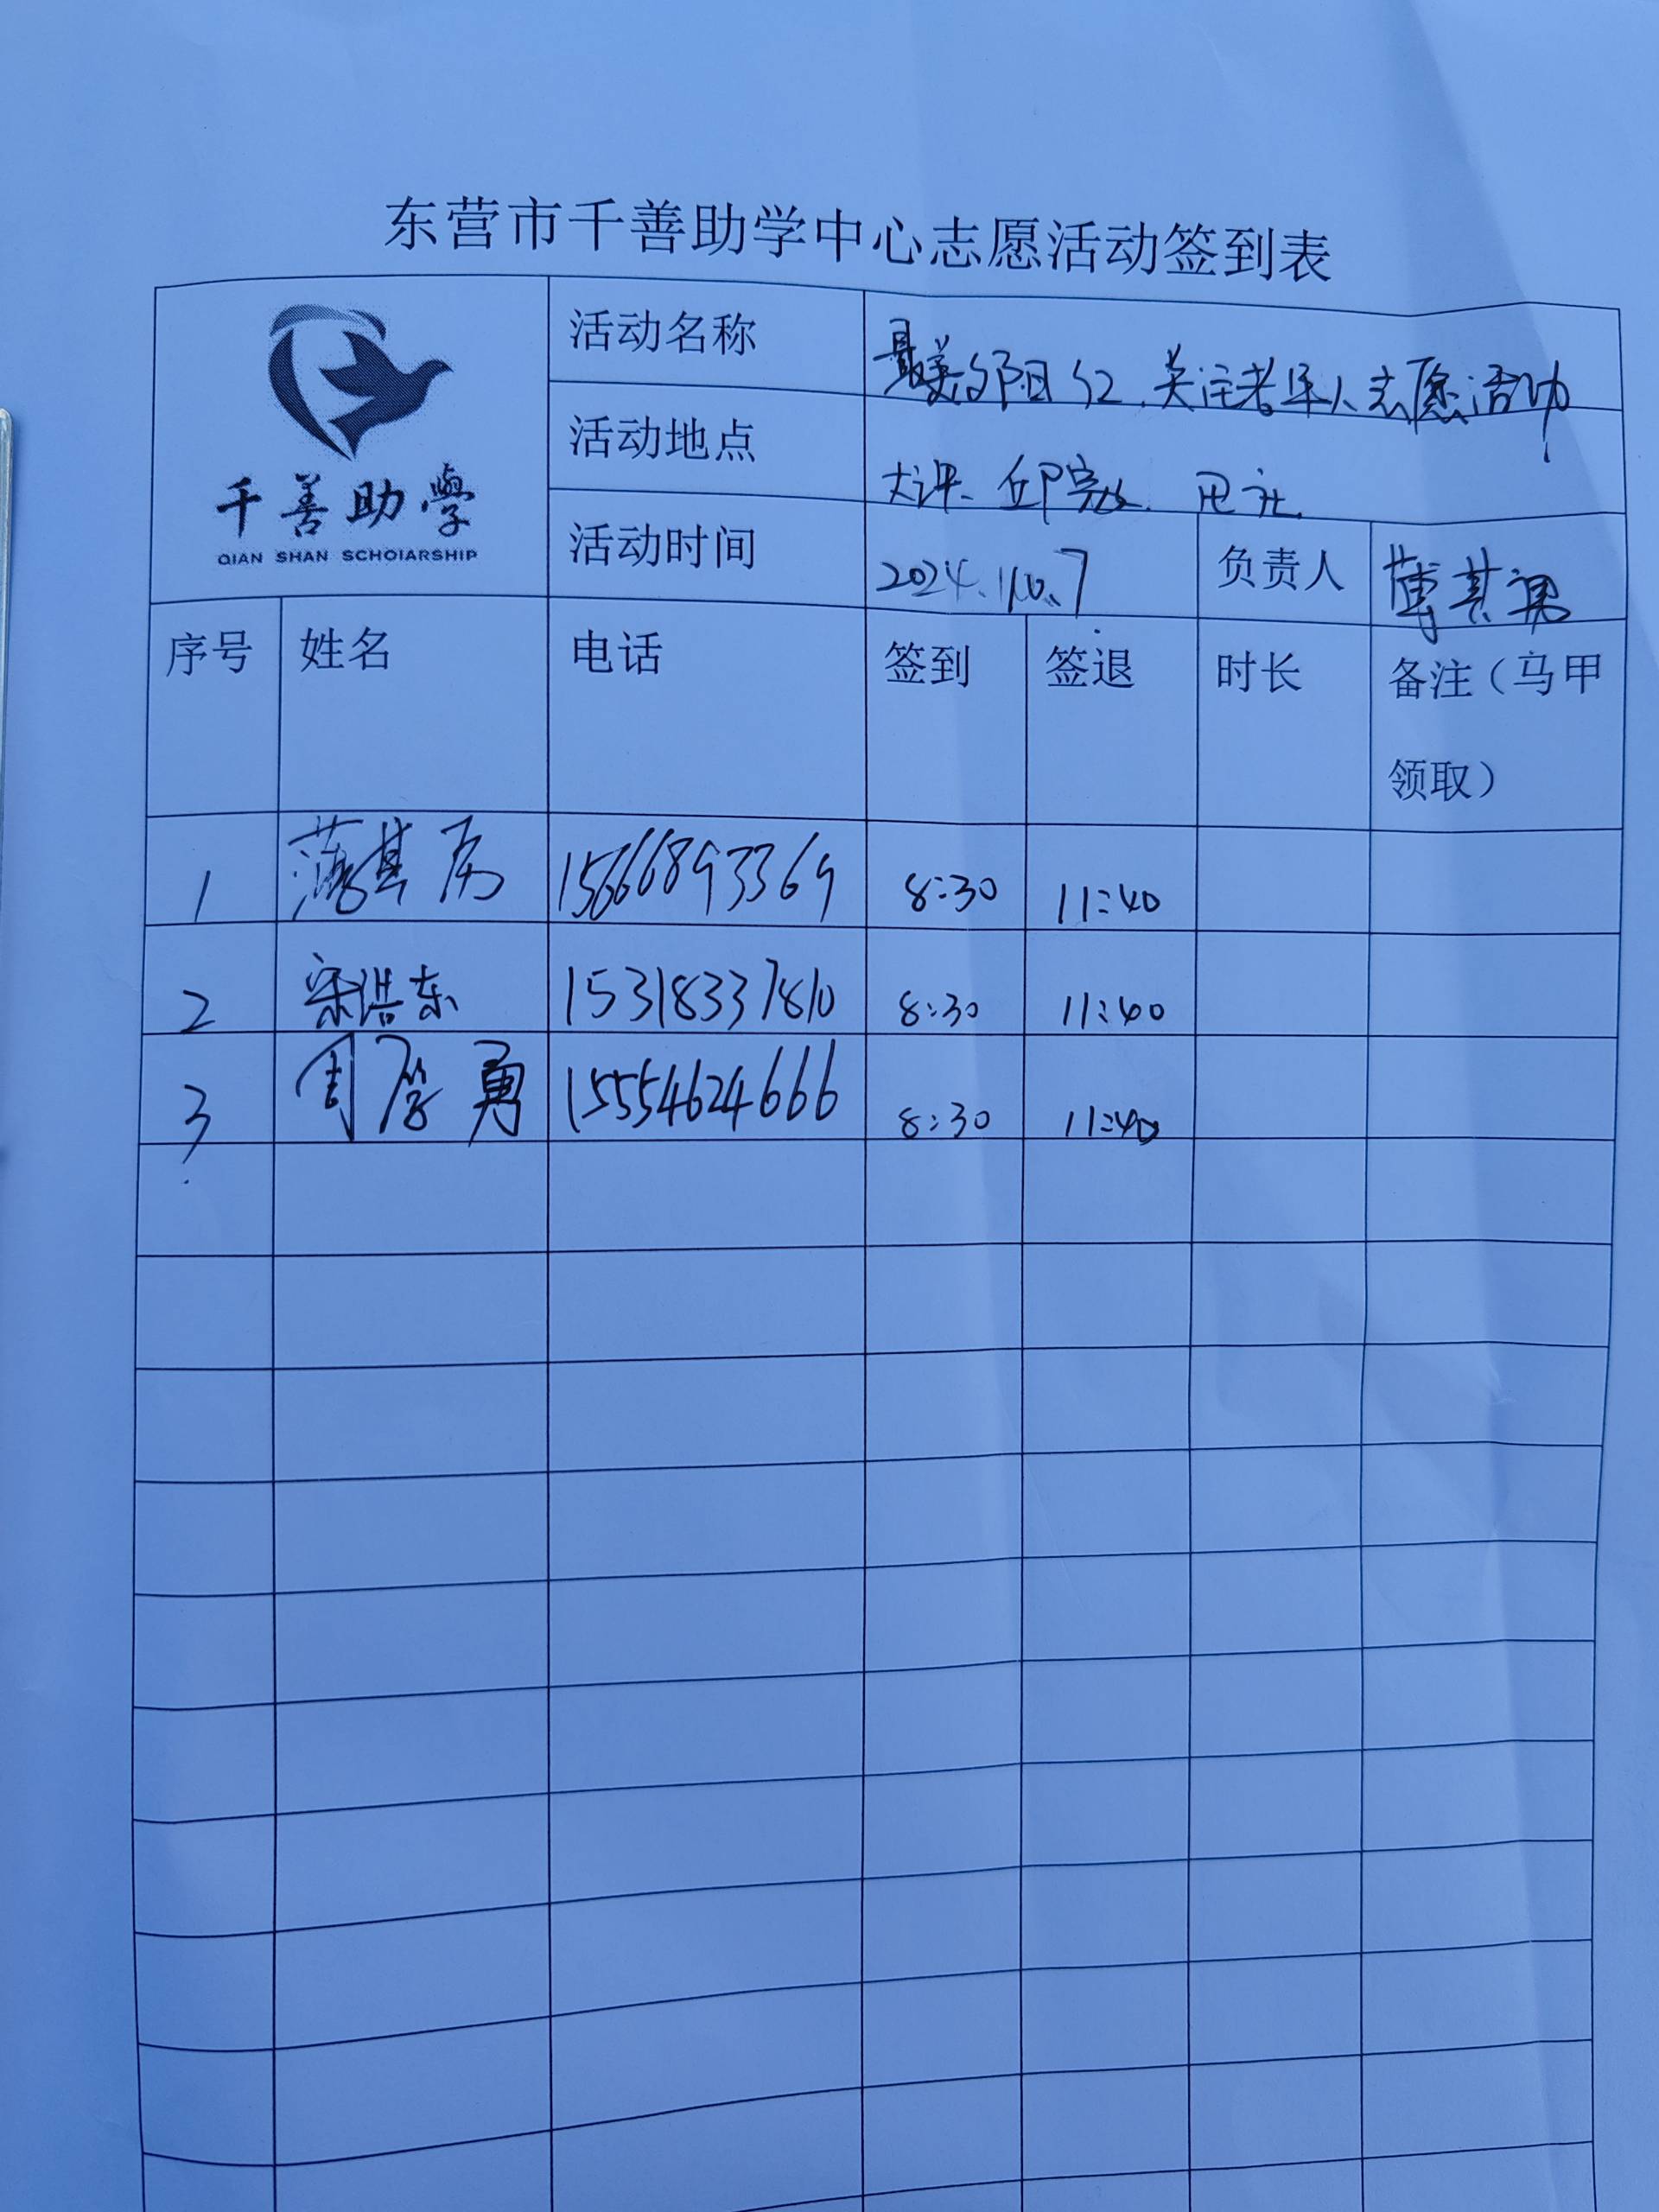 东营市千善助学中心志愿活动签到表
千善助學
QIAN SHAN SCHOIARSHIP
活动名称 最美夕阳红、关注老年人志愿活动
活动地点
活动时间 2024.10.7 负责人
序号 姓名 电话 签到 签退 时长 备注（马甲
领取）
1 15666893369 8:30 11:40
2 宋浩东 15318337810 8:30 11:40
3 周 勇 15554624666 8:30 11:40